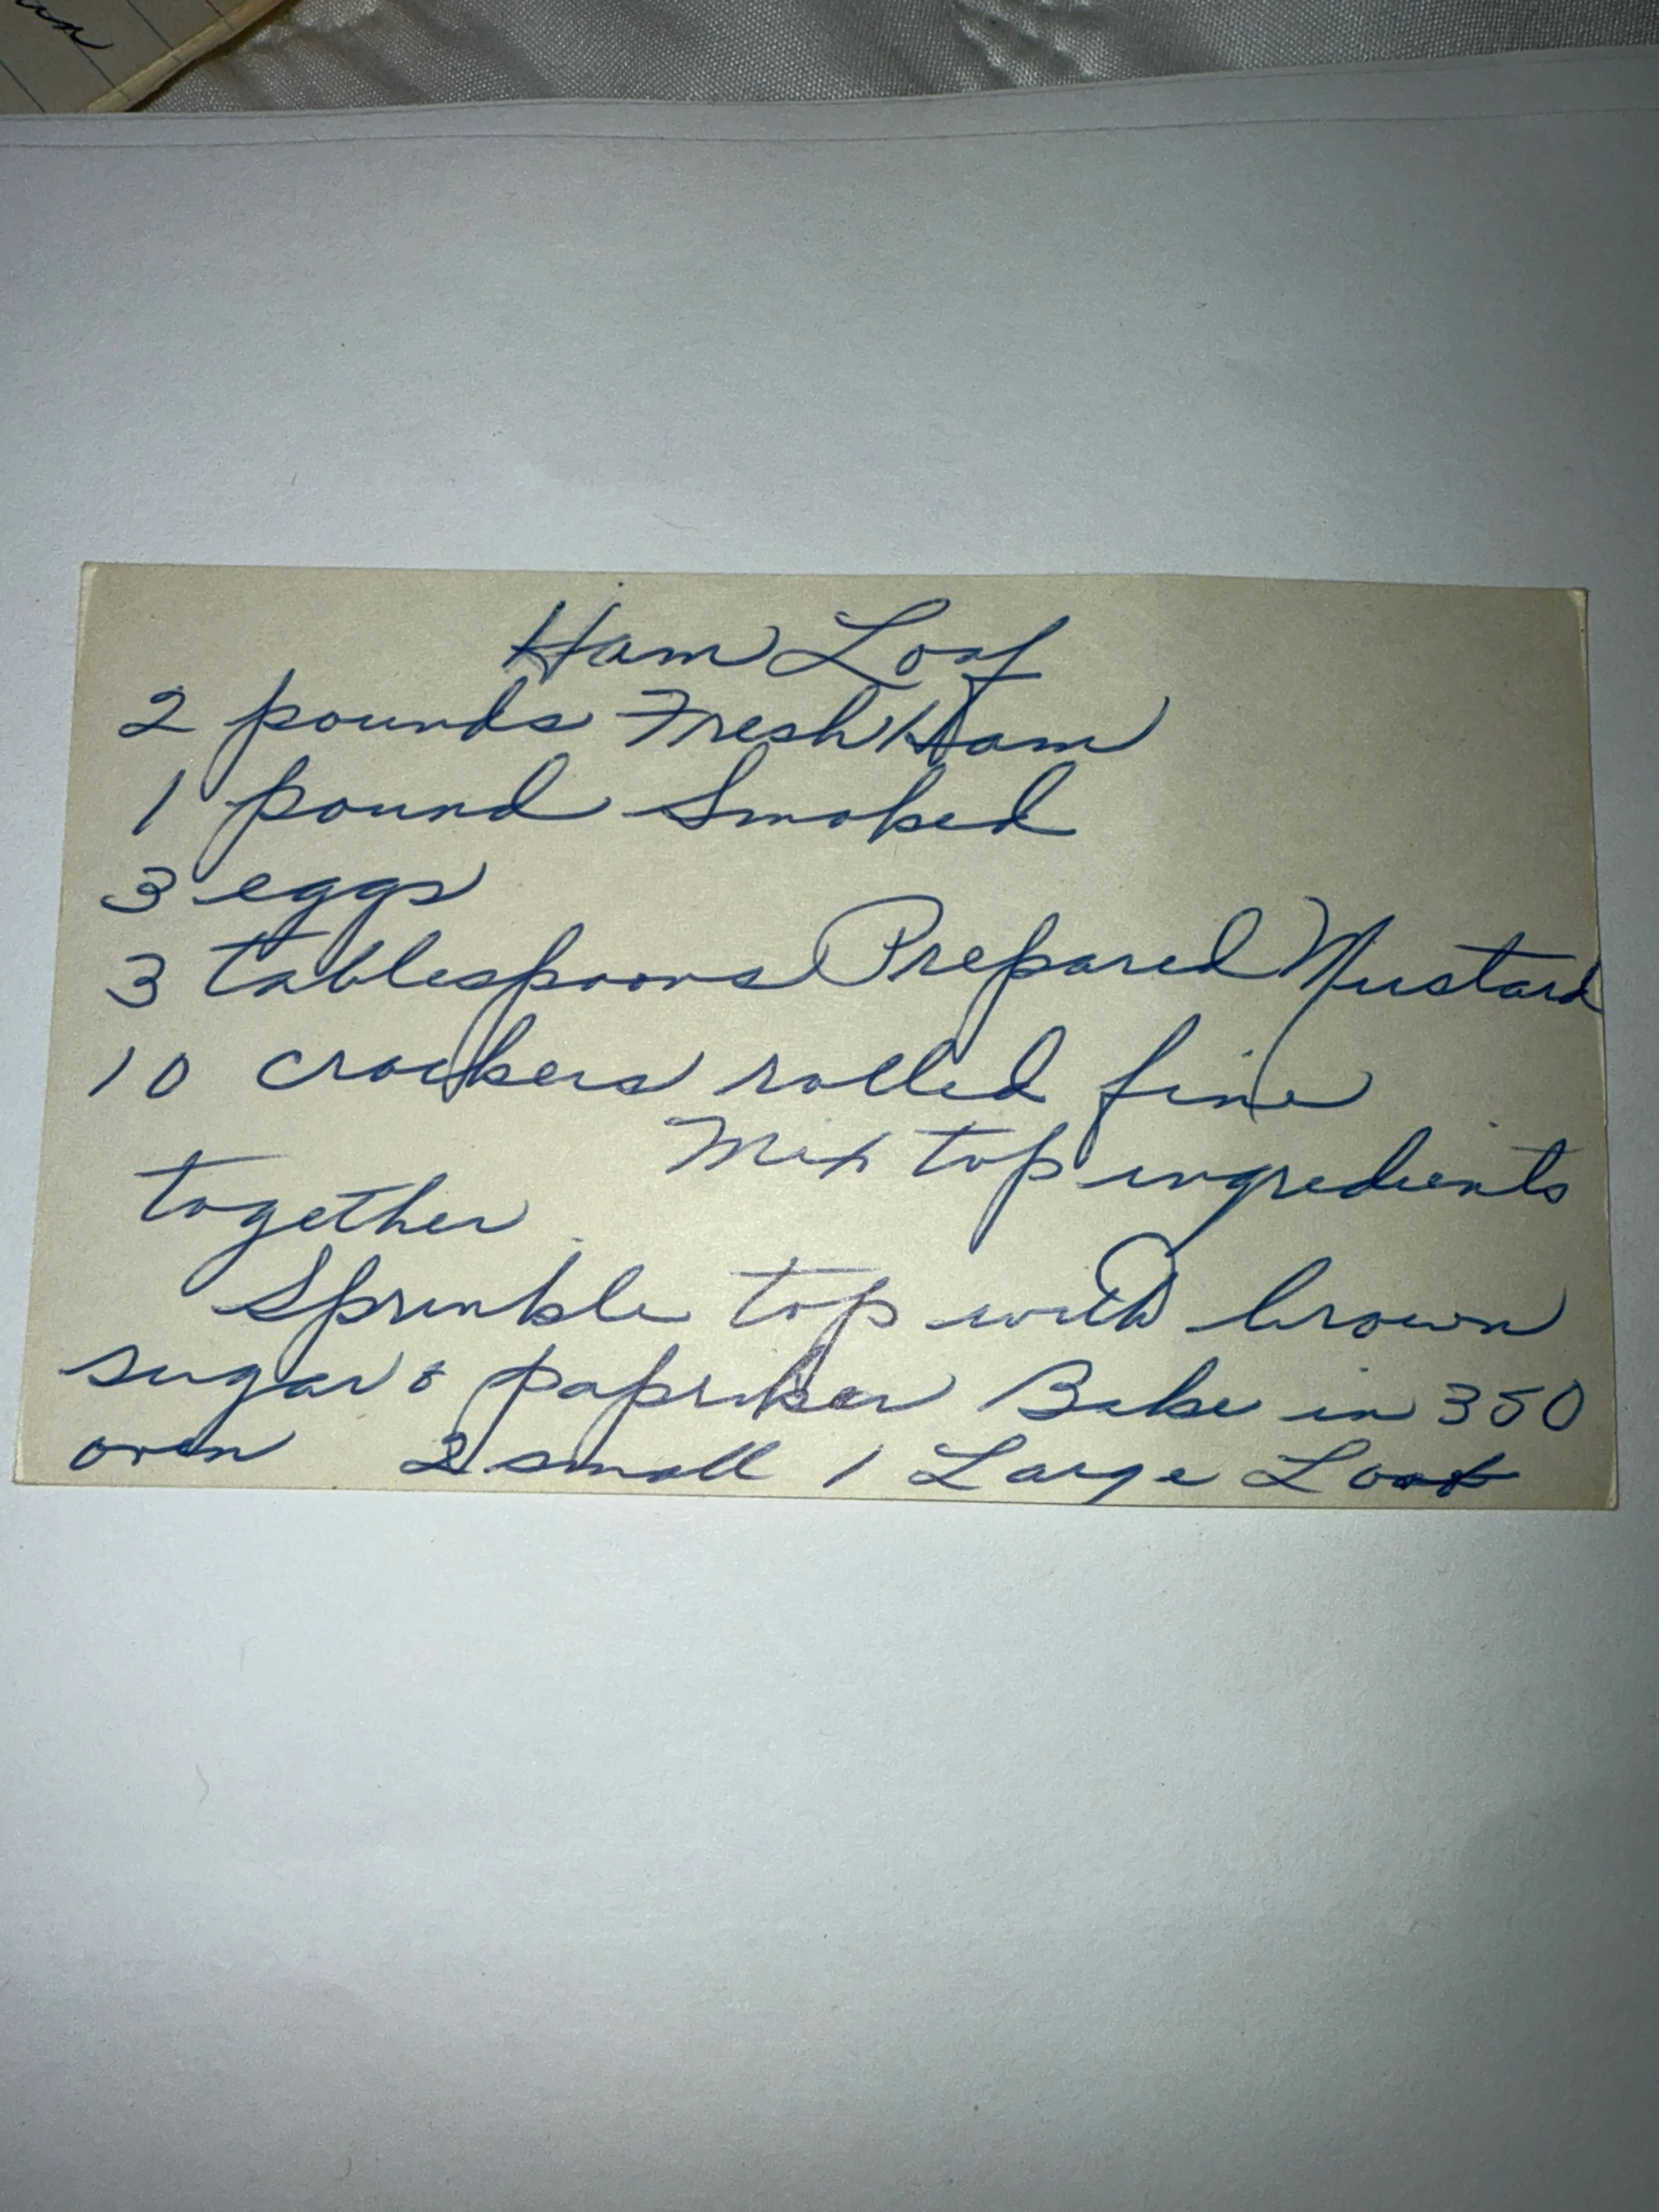 Ham Loaf
2 pounds Fresh Ham
1 pound Smoked
3 eggs
3 tablespoons Prepared Mustard
10 crackers rolled fine
Mix top ingredients
together
Sprinkle top with brown
sugar & papriker Bake in 350
oven 2 small 1 Large Loaf